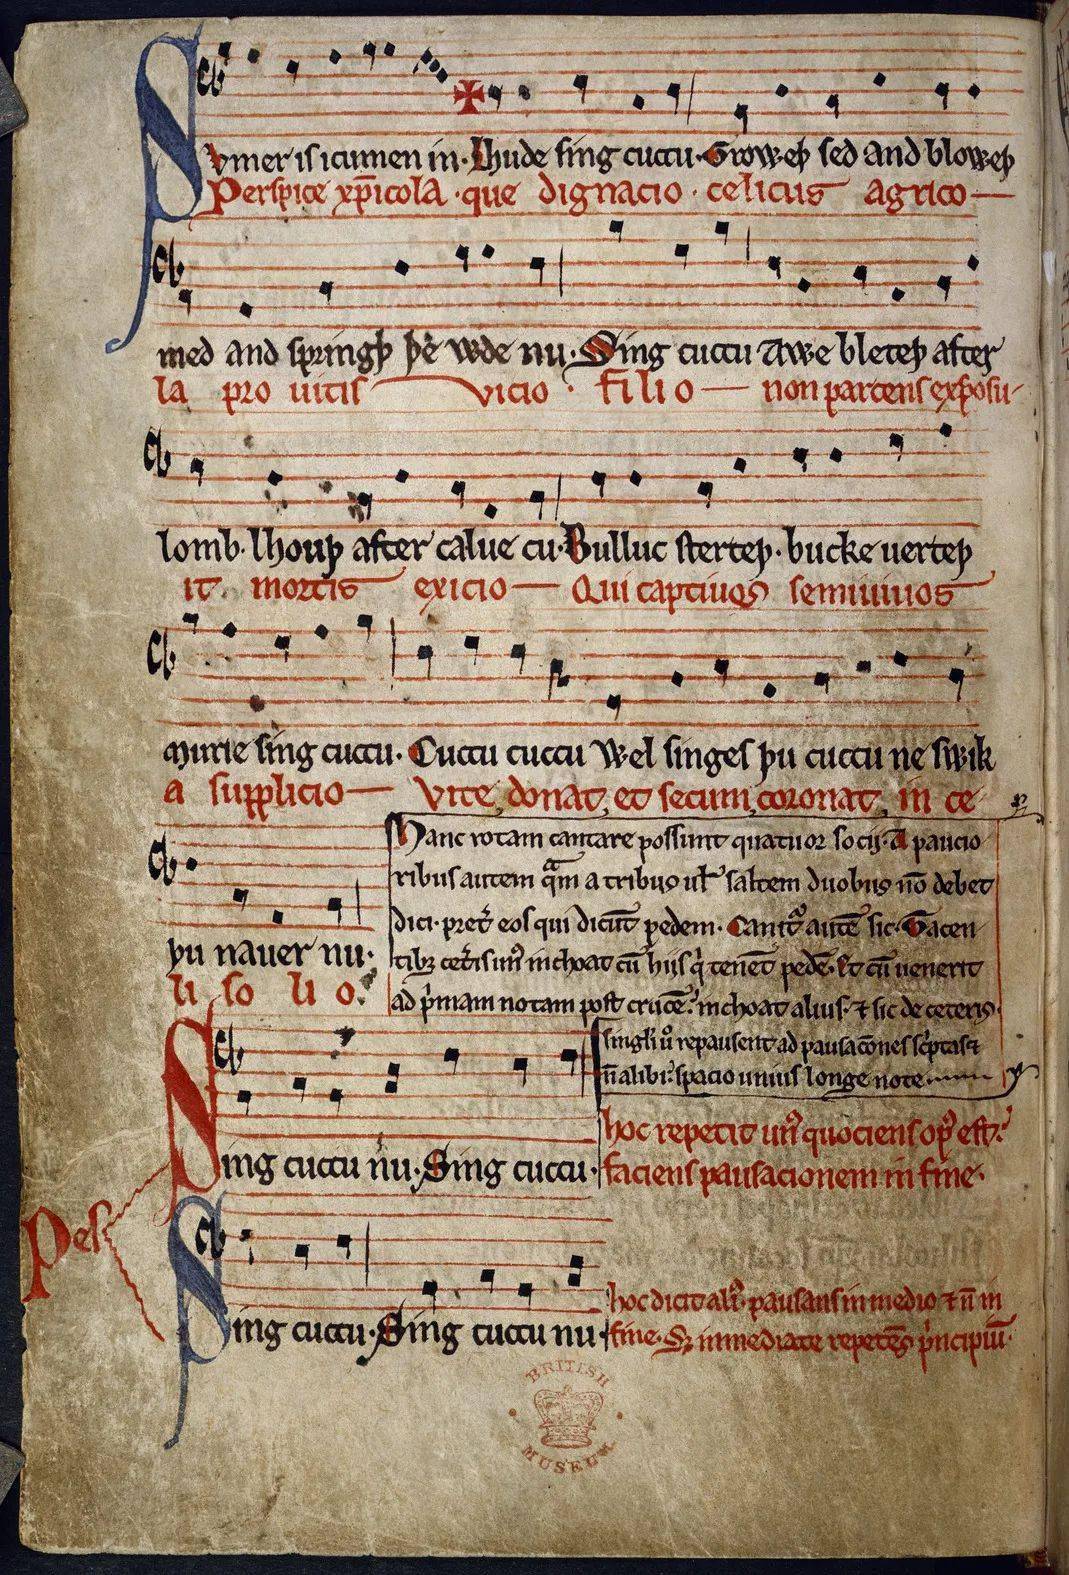 Sumer is icumen in· Lhude sing cuccu· Groweþ sed and bloweþ
Perspice xp̄icola · que dignacio · celicus agrico
med and springþ þe wde nu· Sing cuccu Awe bleteþ after
la pro uitis vicio · filio non parcens exposu
lomb· lhouþ after calue cu· Bulluc sterteþ· bucke uerteþ
it mortis exicio Qui captiuos semiuiuos
murie sing cuccu· Cuccu cuccu Wel singes þu cuccu ne swik
a supplicio vite donat et secum coronat in ce
þu nauer nu·
li so li o·
Hanc rotam cantare possunt quatuor socij· A paucio
ribus autem qͣm a tribus ul' saltem duobus nō debet
dici· pret̉ eos qui dicūt pedem· Canit᷑ autē sic· Tacen
tibȝ cet̉is unꝰ inchoat cū hijs qͥ tenēt pedē· Et cū uenerit
ad pͥmam notam post crucē· inchoat alius· ⁊ sic de ceteris·
singli ủo repausent ad pausac̄ones sc̉ptas ⁊
n̄ alibi· spacio unius longe note
Sing cuccu nu· Sing cuccu·
hoc repetit unꝰ quociens opꝰ est·
faciens pausacionem in fine·
Pes
Sing cuccu· Sing cuccu nu·
hoc dicit aliꝰ· pausans in medio ⁊ n̄ in
fine· Sȝ inmediate repetēs pͥncipiū·
BRITISH
MUSEUM